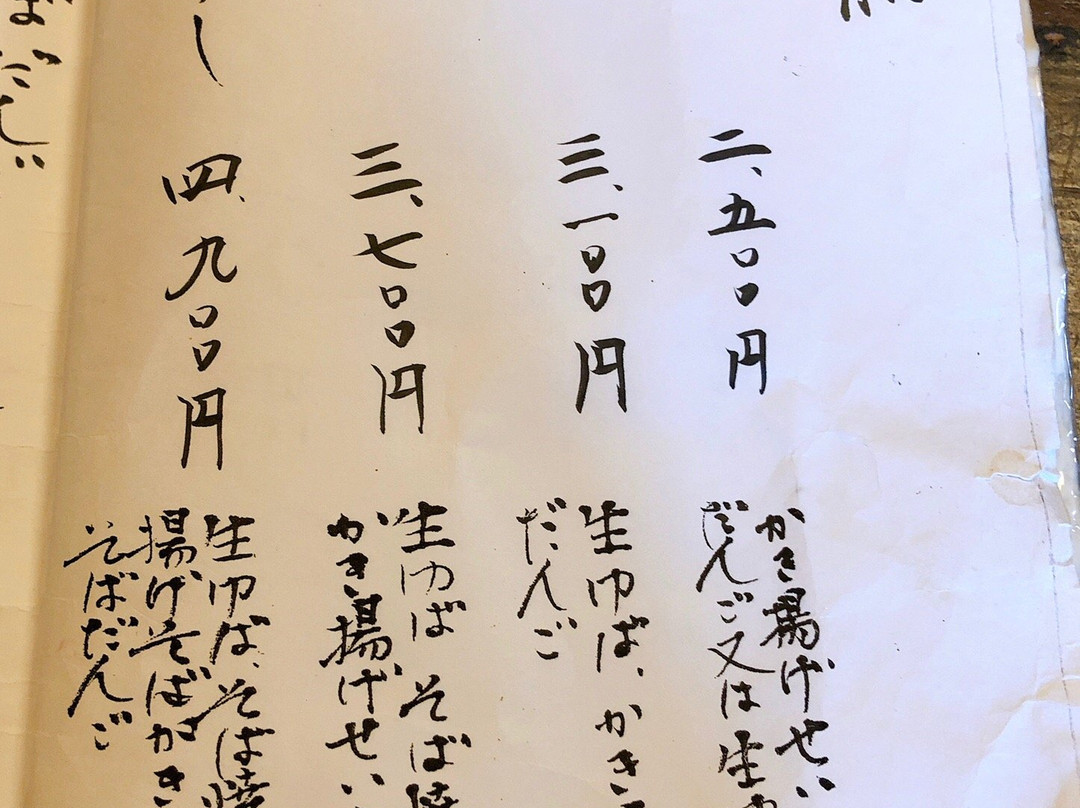 二、五〇〇円
かき揚げせい
だんご又は生ゆ
三、一〇〇円
生ゆば、かき
だんご
三、七〇〇円
生ゆば そば焼
かき揚げせい
四、九〇〇円
生ゆば、そば焼
揚げそばがき
そばだんご
し
ばだん